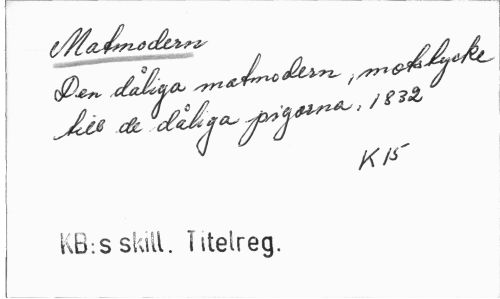 Matmodern
Den dåliga matmodern, motstycke
till de dåliga pigorna, 1832
K 15
KB:s skill. Titelreg.